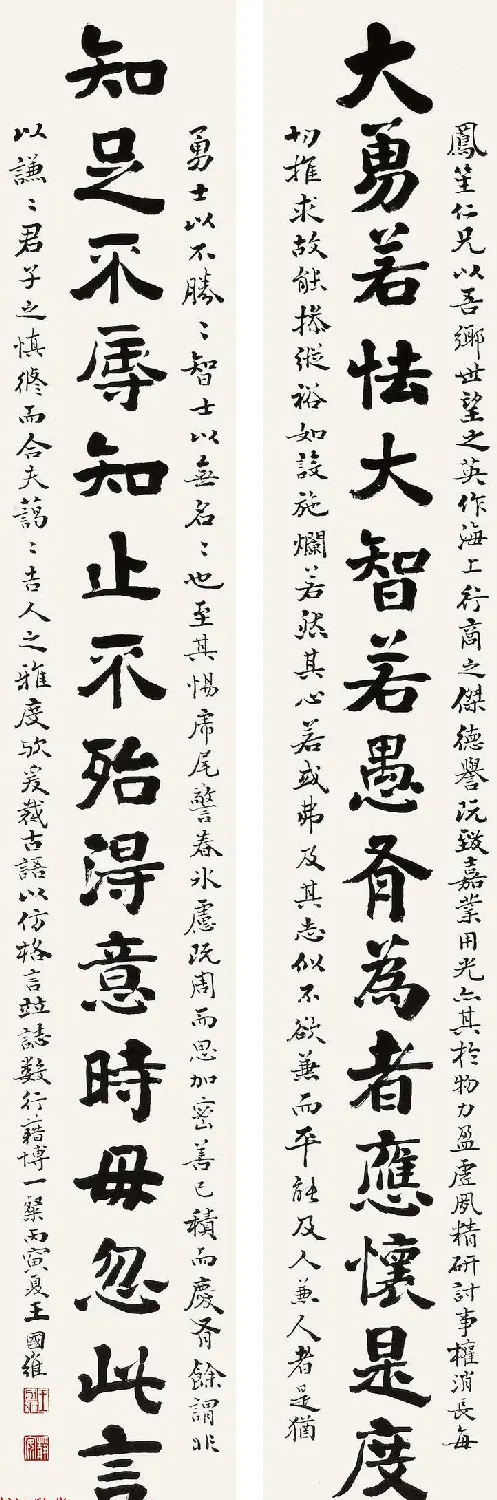 鳳笙仁兄以吾鄉世望之英作海上行商之傑德譽既致嘉業用光亦其於物力盈虛夙精研討事權消長每
大勇若怯大智若愚有為者應懷是度
切推求故能操縱裕如設施爛若然其心若或弗及其志似不欲兼而平能及人兼人者是猶
勇士以不勝〻智士以無名〻也至其惕虎尾警春冰慮既周而思加密善已積而慶有餘謂非
知足不辱知止不殆得意時毋忽此言
以謙〻君子之慎修而合夫藹〻吉人之雅度歟爰裁古語以仿格言並誌數行藉博一粲丙寅夏王國維